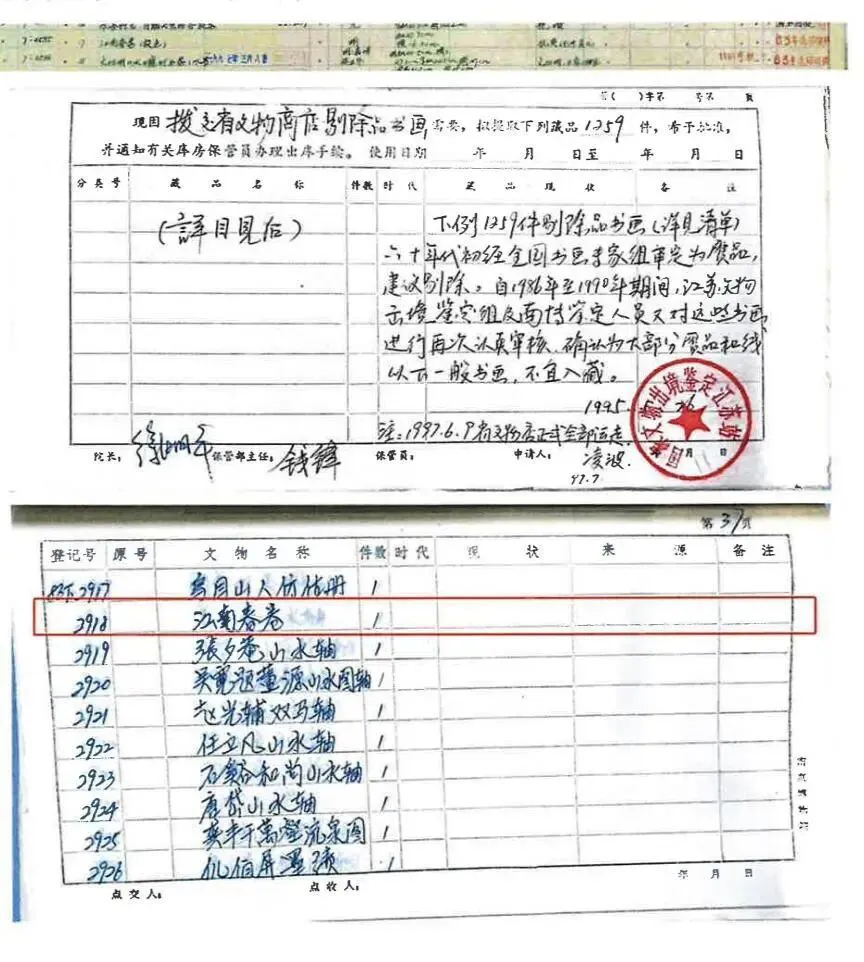 江南春卷
字第 号第 页
现因 拨交省文物商店剔除品书画 需要，拟提取下列藏品 1259 件，希予批准，
并通知有关库房保管员办理出库手续。 使用日期 年 月 日至 年 月 日
分类号 藏品名称 件数 时代 藏品现状 备注
(詳目見后)
下列1259件剔除品书画(详见清单)
六十年代初经全国书画专家组审定为赝品，
建议剔除。自1986年至1990年期间，江苏文物
出境鉴定组及南博鉴定人员又对这些书画
进行再次认真审核，确认为大部分赝品和线
以下一般书画，不宜入藏。
1995. 26
注：1997.6.9省文物店正式全部运走
国家文物出境鉴定江苏站
月 日
院长： 徐湖平 保管部主任： 钱锋 保管员： 申请人： 凌波.
97.7
第37页
登记号 原号 文物名称 件数 时代 现状 来源 备注
2917 1
2918 江南春卷 1
2919 張夕菴山水轴 1
2920 吴寬题董源山水图轴 1
2921 赵光辅双马轴 1
2922 任立凡山水轴 1
2923 石谿和尚山水轴 1
2924 唐岱山水轴 1
2925 千萬壑流泉图 1
2926 1
年 月 日
点交人： 点收人：